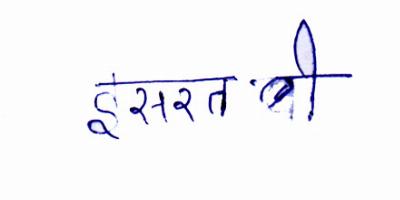 इसरत बी